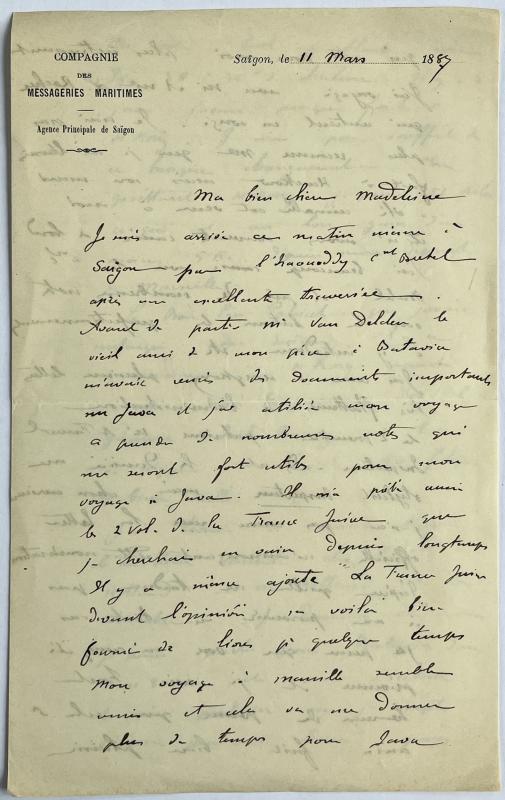 COMPAGNIE
DES
MESSAGERIES MARITIMES
Agence Principale de Saïgon
Saïgon, le 11 Mars 1887
Ma bien chère Madeleine
Je suis arrivé ce matin même à
Saïgon par l'Iraouaddy
après une excellente traversée.
Avant de partir Mr Van Delden le
vieil ami de mon père à Batavia
m'avait remis des documents importants
sur Java et j'ai utilisé mon voyage
à prendre de nombreuses notes qui
me seront fort utiles pour mon
voyage à Java. Il m'a prêté aussi
les 2 vol. de la France Juive que
je cherchais en vain depuis longtemps
Il y a même ajouté "La France Juive
devant l'opinion" me voilà bien
fourni de livres quelque temps
Mon voyage à Manille semble
et cela va me donner
plus de temps pour Java